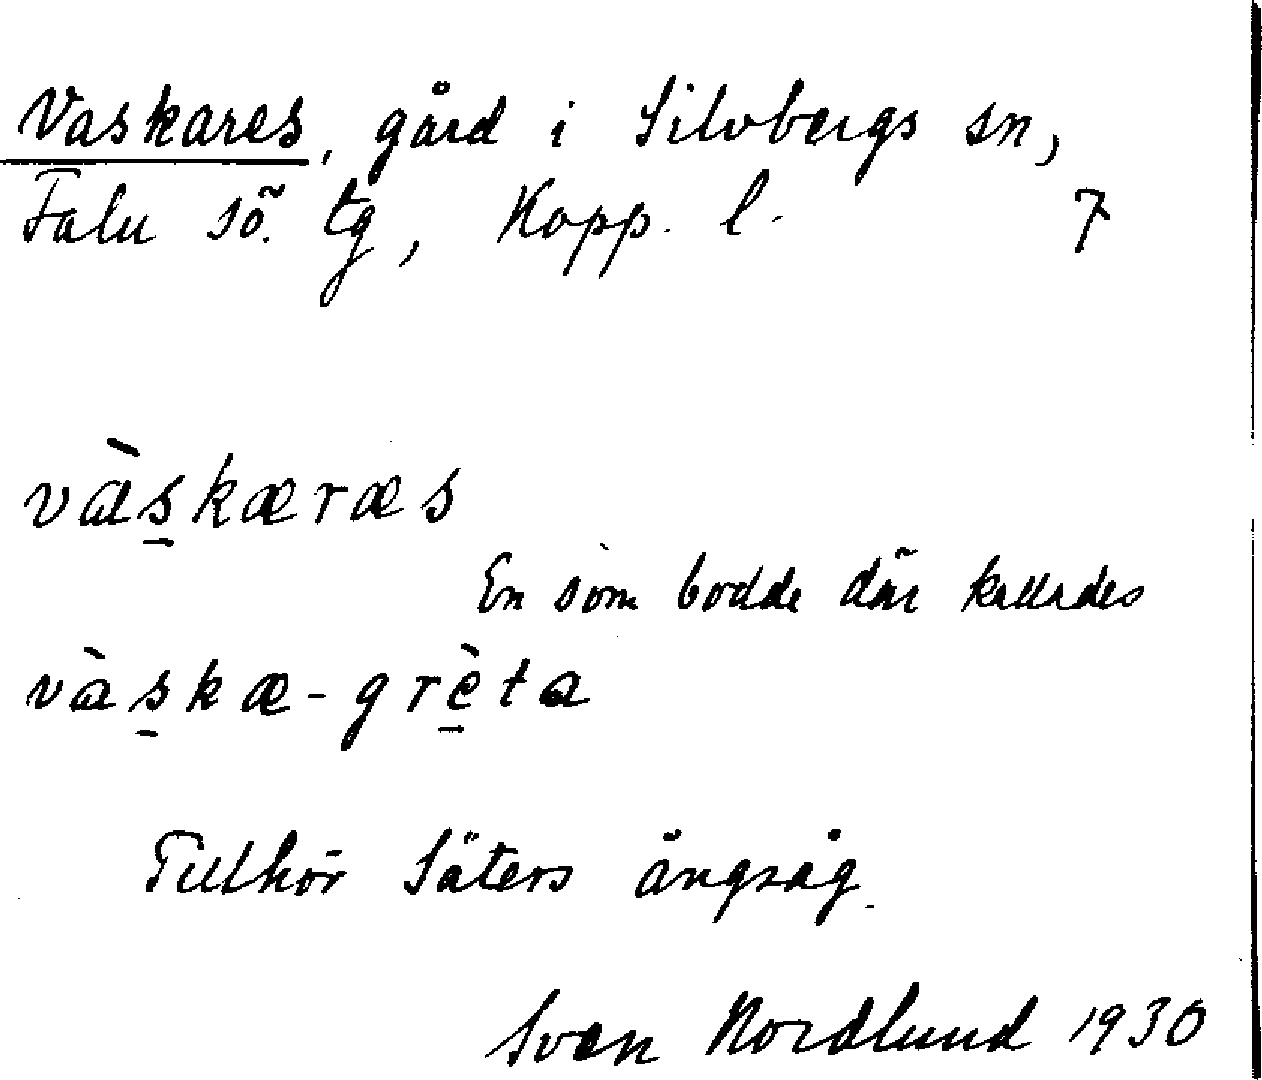 Vaskares, gård i Silvbergs sn,
Falu sö. tg, Kopp. l. 7
vàs̲kæræs
En som bodde där kallades
vàs̲kæ-grè̲ta
Tillhör Säters ångsåg.
Sven Nordlund 1930